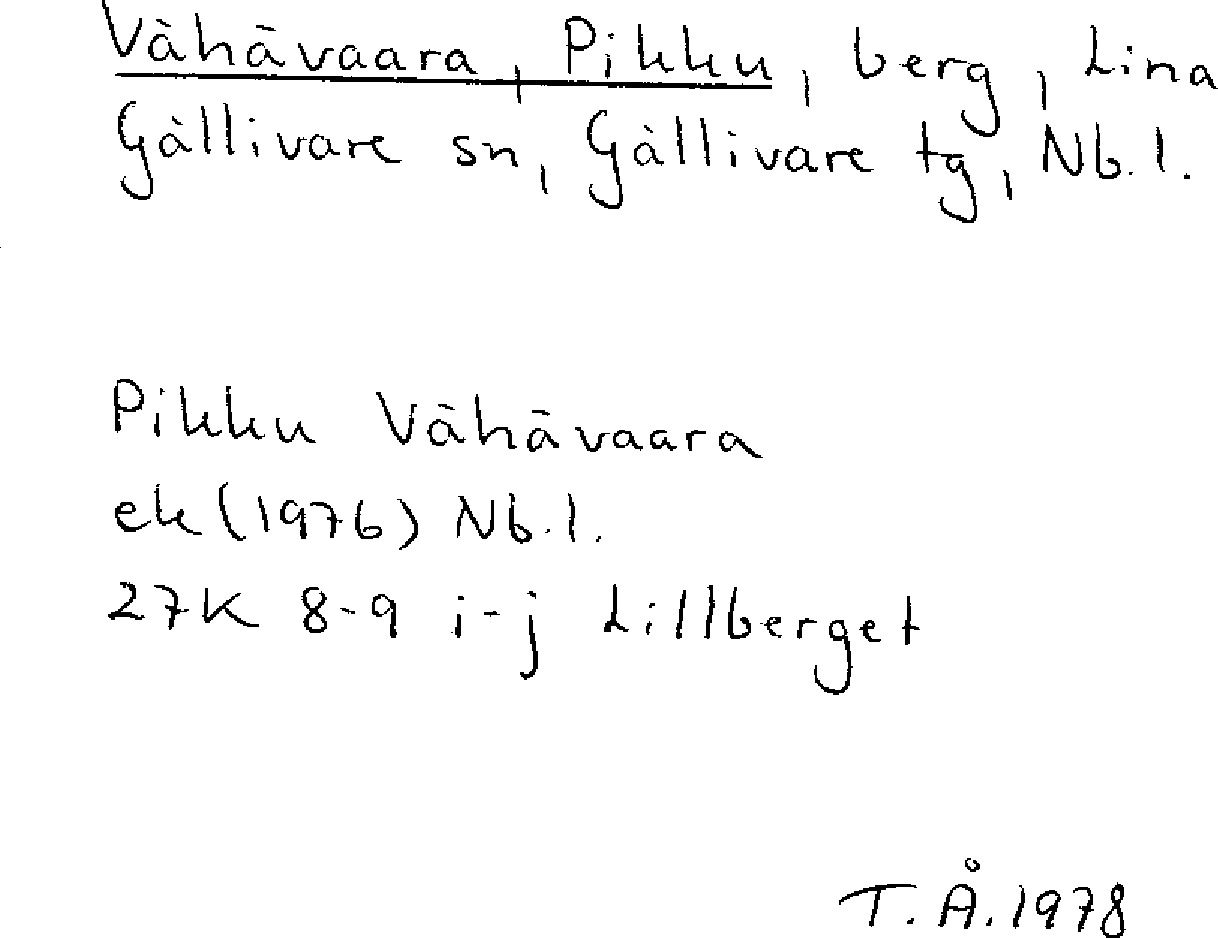 Vähävaara, Pikku, berg, Lina
Gällivare sn, Gällivare tg, Nb.l.
Pikku Vähävaara
ek (1976) Nb.l.
27K 8-9 i-j Lillberget
T.Å.1978